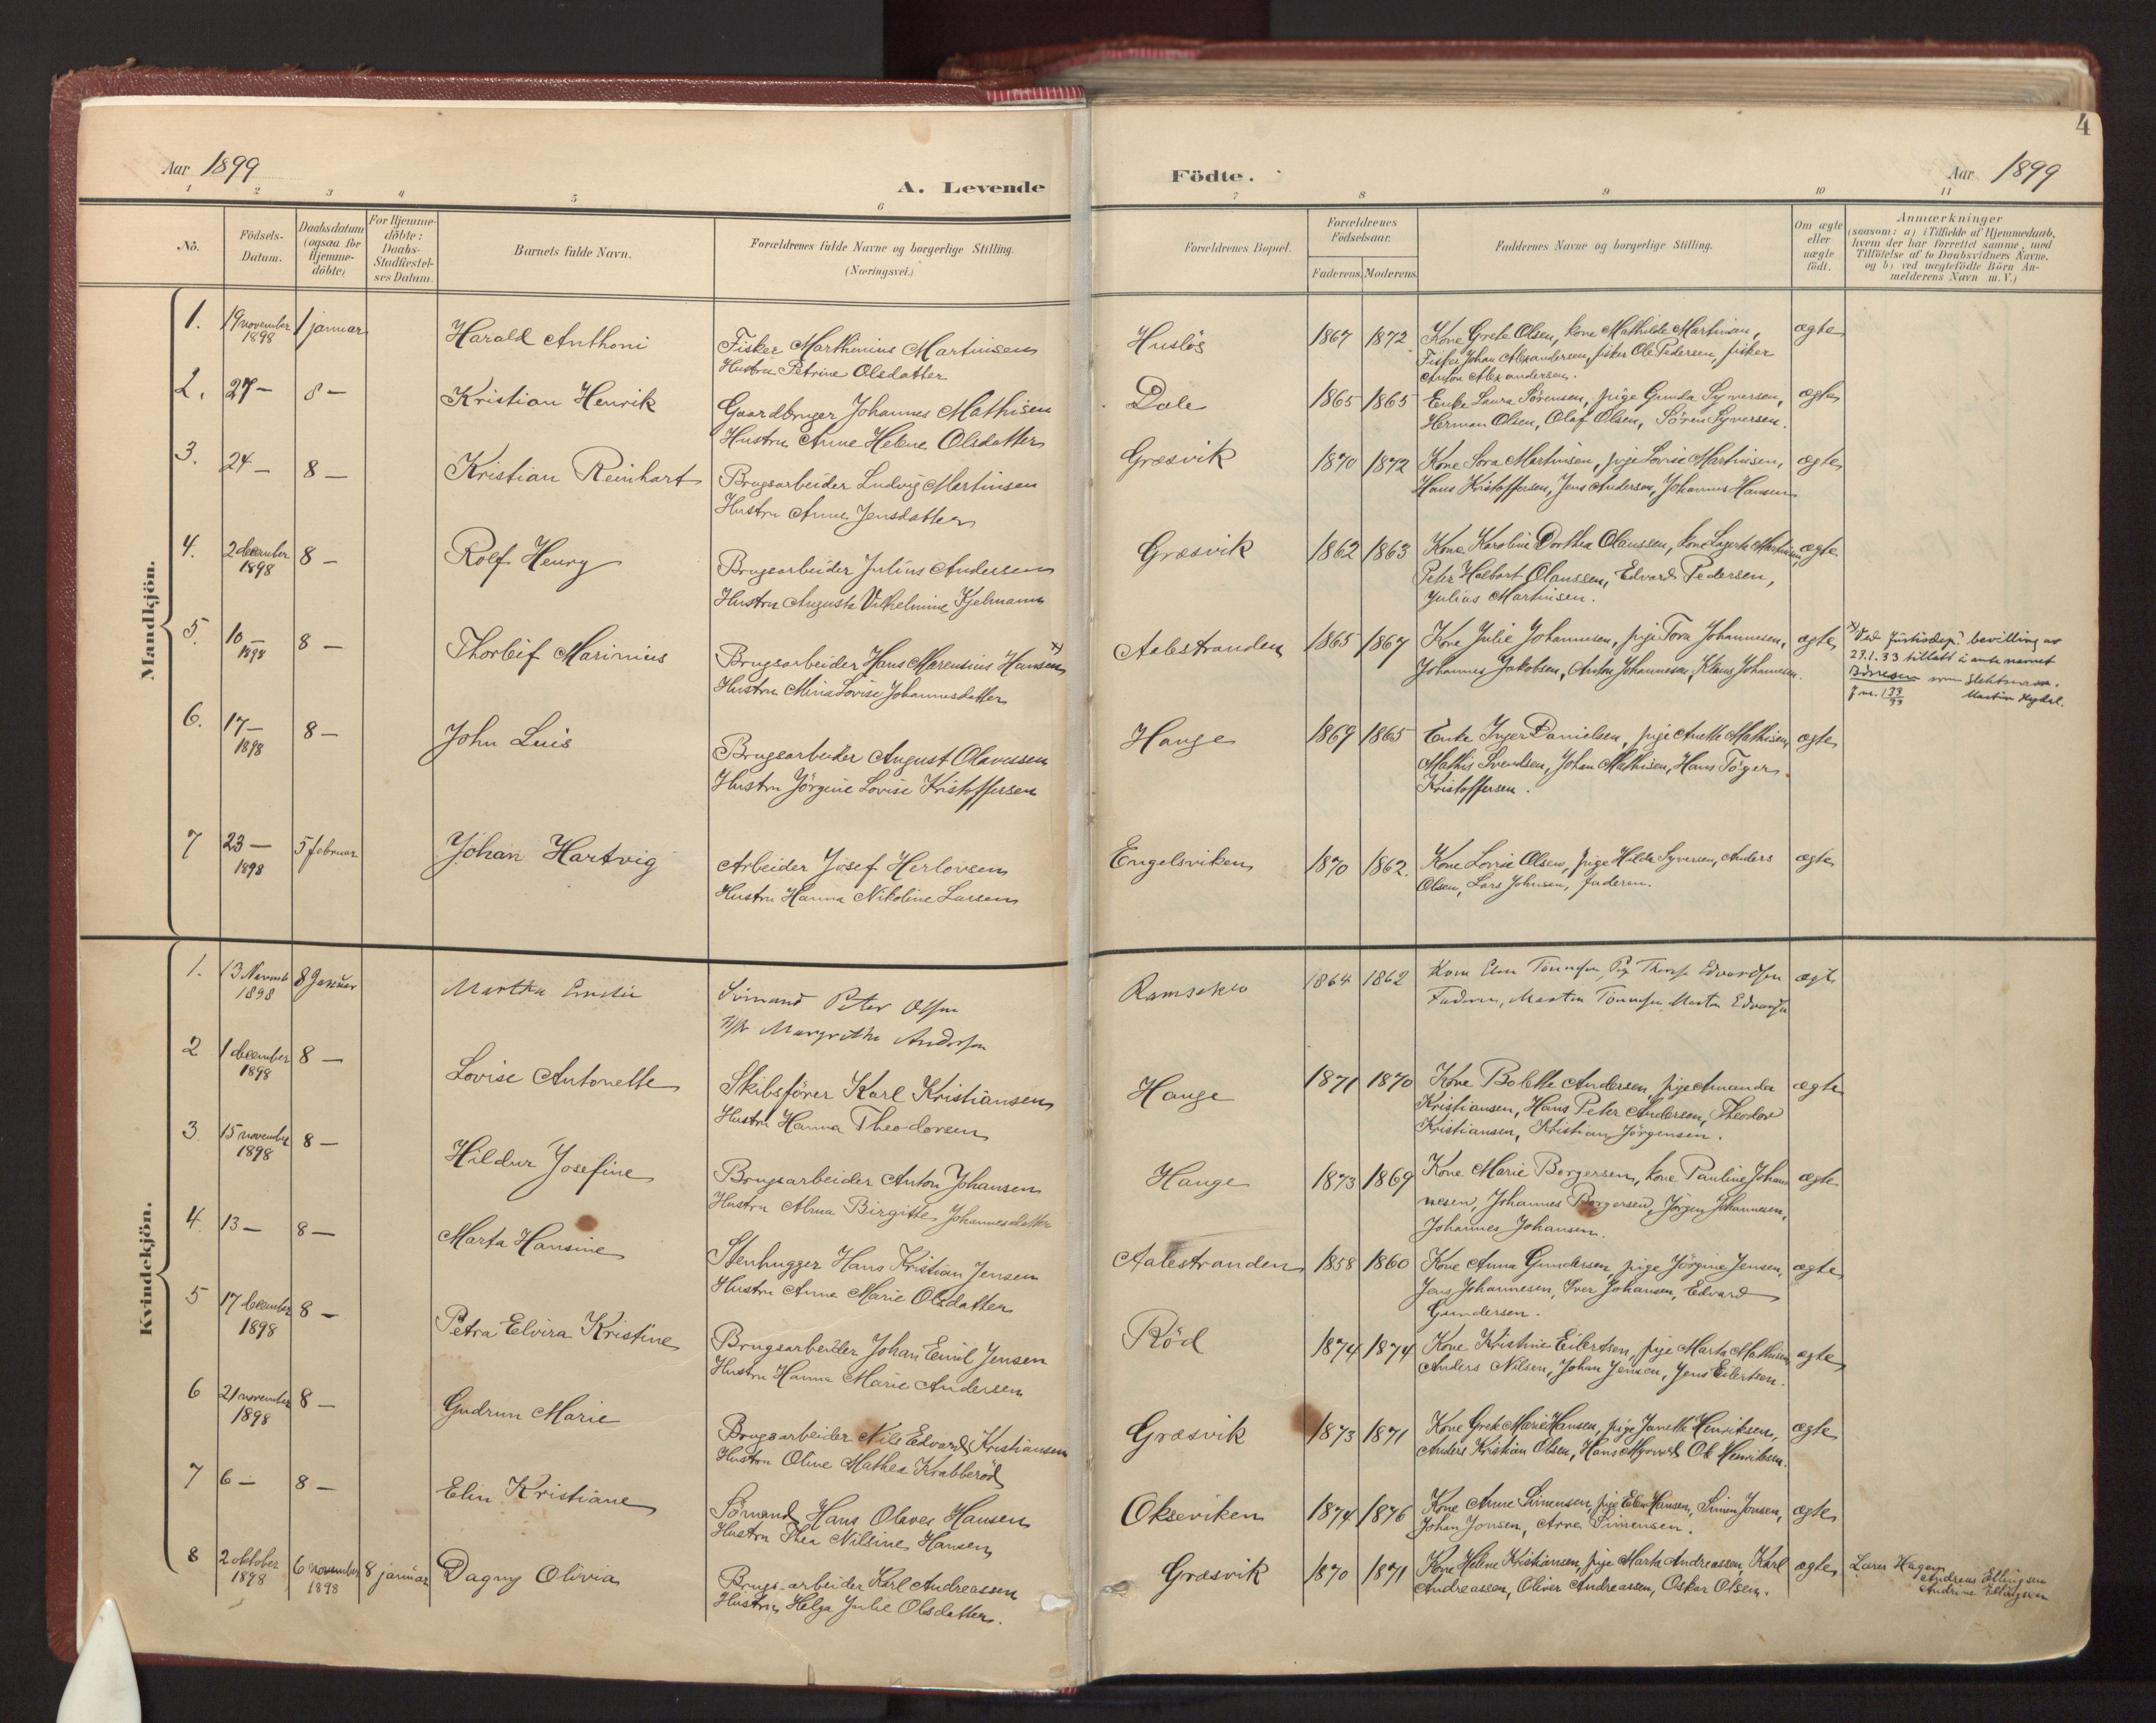 4
Aar 1899
A. Levende
Födte.
Aar 1899
1 2 3 4 5 6 7 8 9 10 11
No.
Födsels-
Datum.
Daabsdatum
(ogsaa for
Hjemme-
döbte)
For Hjemme-
döbte:
Daabs-
Stadfæstel-
ses Datum.
Barnets fulde Navn.
Forældrenes fulde Navne og borgerlige Stilling.
(Næringsvei.)
Forældrenes Bopæl.
Forældrenes
Födselsaar.
Faderens. Moderens.
Faddernes Navne og borgerlige Stilling.
Om ægte
eller
uægte
födt.
Anmærkninger
(saasom: a) i Tilfælde af Hjemmedaab,
hvem der har forrettet samme, med
Tilföielse af to Daabsvidners Navne.
og b) ved uægtefödte Börn An-
melderens Navn m. V.)
Mandkjön.
1. 19 november 1898 1 januar Harald Anthoni
Fisker Marthinius Martinsen
Hustru Petrine Olsdatter
Huslös 1867 1872
Kone Grete Olsen, kone Mathilde Martinsen,
Fisker Johan Alexandersen, fisker Ole Pedersen, fisker
Anton Alexandersen.
ægte
2. 27 — 8 — Kristian Henrik
Gaardbruger Johannes Mathisen
Hustru Anne Helene Olsdatter
Dale 1865 1865
Enke Laura Sörensen, pige Gunda Syversen,
Herman Olsen, Olaf Olsen, Sören Syversen.
ægte
3. 24 — 8 — Kristian Reinhart
Brugsarbeider Ludvig Martinsen
Hustru Anne Jensdatter
Græsvik 1870 1872
Kone Sora Martinsen, pige Lovise Martinsen,
Hans Kristoffersen, Jens Andersen, Johannes Hansen
ægte
4. 2 december 1898 8 — Rolf Henry
Brugsarbeider Julius Andersen
Hustru Augusta Vilhelmine Kjelmann
Græsvik 1862 1863
Kone Karoline Dorthea Olaussen, kone Lagerta Martinsen,
Peter Halbert Olaussen, Edvard Pedersen,
Julius Martinsen.
ægte
5. 10 — 1898 8 — Thorleif Marinius
Brugsarbeider Hans Marensius Hansen x)
Hustru Mina Lovise Johannesdatter
Aalestranden 1865 1867
Kone Julie Johannesen, pige Tora Johannesen,
Johannes Jakobsen, Anton Johannesen, Klaus Johannesen.
ægte
x) Ved Justisdep.s bevilling av
23.1.33 tillatt å anta navnet
som slektsnavn.
6. 17 — 1898 8 — John Luis
Brugsarbeider August Olavessen
Hustru Jörgine Lovise Kristoffersen
Hauge 1869 1865
Enke Inger Danielsen, pige Anette Mathisen,
Mathis Svendsen, Johan Mathisen, Hans Töger
Kristoffersen.
ægte
7 23 — 1898 5 februar Johan Hartvig
Arbeider Josef Herlovsen
Hustru Hanna Nikoline Larsen
Engelsviken 1870 1862.
Kone Lovise Olsen, pige Hilda Syversen, Anders
Olsen, Lars Johnsen, faderen.
ægte
Kvindekjön.
1. 13 Novemb 1898 8 Januar Martha Emilie
Sömand Peter Olsen
H/st Margrethe Andersen
Ramsekro 1864 1862
Kone Elen Tönnesen Pig Edvardsen
Faderen, Martin Tönnesen, Martin Edvardsen
ægte
2 1 december 1898 8 — Lovise Antonette
Skibsförer Karl Kristiansen
Hustru Hanna Theodorsen
Hauge 1871 1870
Kone Bolette Andersen, pige Amanda
Kristiansen, Hans Peter Andersen, Theodor
Kristiansen, Kristian Jörgensen.
ægte
3. 15 november 1898 8 — Hildur Josefine
Brugsarbeider Anton Johansen
Hustru Alma Birgitte Johannesdatter
Hauge 1873 1869
Kone Marie Borgersen, kone Pauline Johan
nesen, Johannes Borgersen, Jörgen Johannesen,
Johannes Johansen.
ægte
4. 13 — 8 — Marta Hansine
Stenhugger Hans Kristian Jensen
Hustru Anne Marie Olsdatter
Aalestranden 1858 1860
Kone Anna Gundersen, pige Jörgine Jensen,
Jens Johannesen, Iver Johansen, Edvard
Gundersen.
ægte
5 17 december 1898 8 — Petra Elvira Kristine
Brugsarbeider Johan Emil Jensen
Hustru Hanna Marie Andersen
Röd 1874 1874
Kone Kristine Eilertsen, pige Marta Mathisen,
Anders Nilsen, Johan Jensen, Jens Eilertsen.
ægte
6 21 november 1898 8 — Gudrun Marie
Brugsarbeider Nils Edvard Kristiansen
Hustru Oline Mathea Krabberöd
Græsvik 1873 1871
Kone Grete Marie Hansen, pige Janette Henriksen,
Anders Kristian Olsen, Hans Myrvold, Ole Henriksen.
ægte
7 6 — 8 — Elen Kristiane
Sömand Hans Olaves Hansen
Hustru Thea Nilsine Hansen
Okseviken 1874 1876
Kone Anne Simensen, pige Elen Hansen, Simen Jonsen,
Johan Jonsen, Arne Simensen.
ægte
8 2 oktober 1898 6 november 1898 8 januar Dagny Olivia
Brugs-arbeider Karl Andreassen
Hustru Helga Julie Olsdatter.
Græsvik 1870 1871
Kone Helene Kristiansen, pige Marta Andreassen, Karl
Andreassen, Oliver Andreassen, Oskar Olsen.
ægte
Laura Hagen
Andreas Ellingsen
Andrine Ellingsen